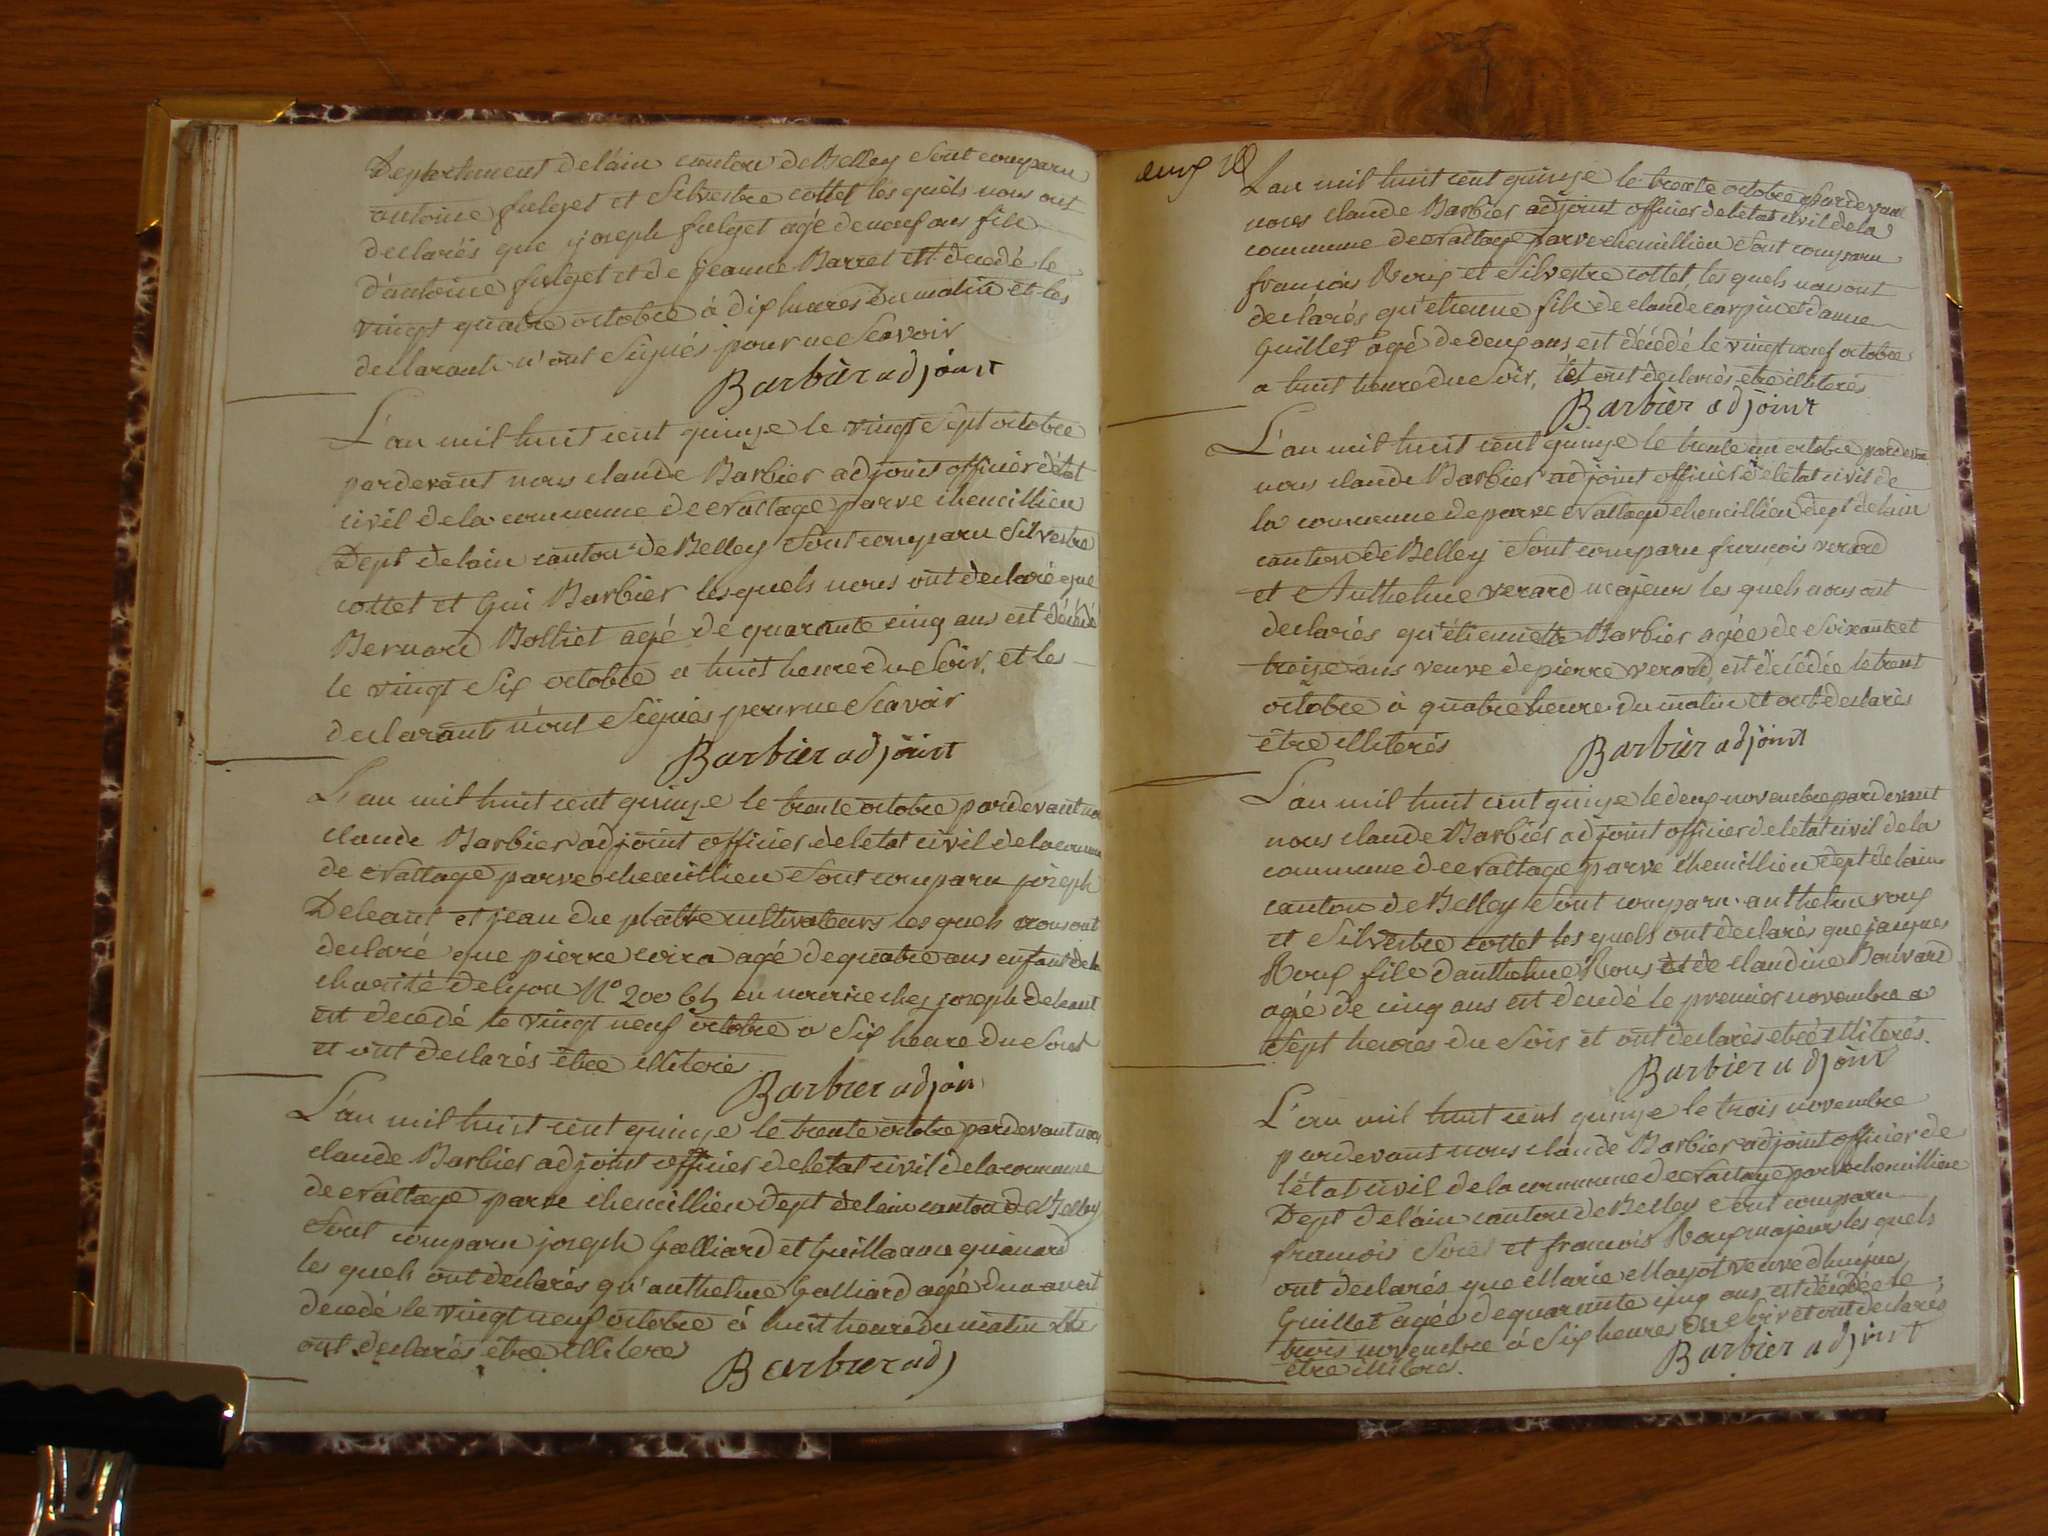 Departement delain canton de Belley sont comparu
antoine fulget et Silvestre cottet les quels nous ont
declarés que joseph fulget agé de neuf ans fils
d'antoine fulget et de jeanne Barret est decedé le
vingt quatre octobre à dix heures du matin et les
declarants n'ont Signés pour ne Scavoir
Barbier adjoint
L'an mil huit cent quinze le vingt Sept octobre
pardevant nous claude Barbier adjoint officier d'état
civil dela commune de parve chemillieu
Dept delain canton de Belley Sont comparu Silvestre
cottet et Gui Barbier les quels nous ont declaré que
Bernard Bolliet agé de quarante cinq ans est décédé
le vingt Six octobre a huit heure du Soir, et les
declarants n'ont Signés pour ne Scavoir
Barbier adjoint
L'an mil huit cent quinze le trente octobre pardevant nous
claude Barbier adjoint officier deletat civil dela commune
de parve chemillieu Sont comparu joseph
Deleant et jean du platre cultivateurs les quels nous ont
declaré que pierre agé de quatre ans enfant de la
charité de lyon N° 200 en nourrice chez joseph deleant
est decedé le vingt neuf octobre a Six heure du Soir
et ont declarés être illiteré
Barbier adjoin
L'an mil huit cent quinze le trente octobre pardevant nous
claude Barbier adjoint officier deletat civil dela commune
de parve chemillieu dept delain canton de Belley
Sont comparu joseph Galliard et Guillaume
les quels ont declarés qu'anthelme Galliard agé d'un an est
decedé le vingt neuf octobre à huit heure du matin
ont declarés être illiteres
Barbier adj
L'an mil huit cent quinze le trente octobre Pardevant
nous claude Barbier adjoint officier deletat civil dela
commune de parve chemillieu Sont comparu
françois et Silvestre cottet, les quels nous ont
declarés qu'etienne fils de claude carpin et d'anne
Guillet agé de deux ans, est décédé le vingt neuf octobre
a huit heure du Soir, et ont declarés être illiterés
Barbier adjoint
L'an mil huit cent quinze le trente un octobre pardevant
nous claude Barbier adjoint officier de letat civil de
la commune de parve chemillieu dept delain
canton de Belley Sont comparu françois verard
et Anthelme verard majeurs les quels nous ont
declarés qu'étiennette Barbier agée de Soixante et
treize ans veuve de pierre verard, est décédée le trent
octobre à quatre heure du matin et ont declarés
être illiterés
Barbier adjoint
L'an mil huit cent quinze le deux novembre pardevant
nous claude Barbier adjoint officier deletat civil dela
commune de parve chemillieu dept delain
canton de Belley Sont comparu anthelme roux
et Silvestre cottet les quels ont declarés que jacques
Roux fils d'anthelme Roux et de claudine Bouvard
agé de cinq ans est decedé le premier novembre a
Sept heures du Soir et ont declarés etre illiterés.
Barbier adjoint
L'an mil huit cent quinze le trois novembre
pardevant nous claude Barbier adjoint officier de
l'état civil dela commune de parve chemillieu
Dept delain canton de Belley Sont comparu
françois et françois Roux majeurs les quels
ont declarés que Marie Mayot veuve
Guillet agée de quarante cinq ans, est décédée le
trois novembre à Six heures du Soir et ont declarés
être illiterés.
Barbier adjoint